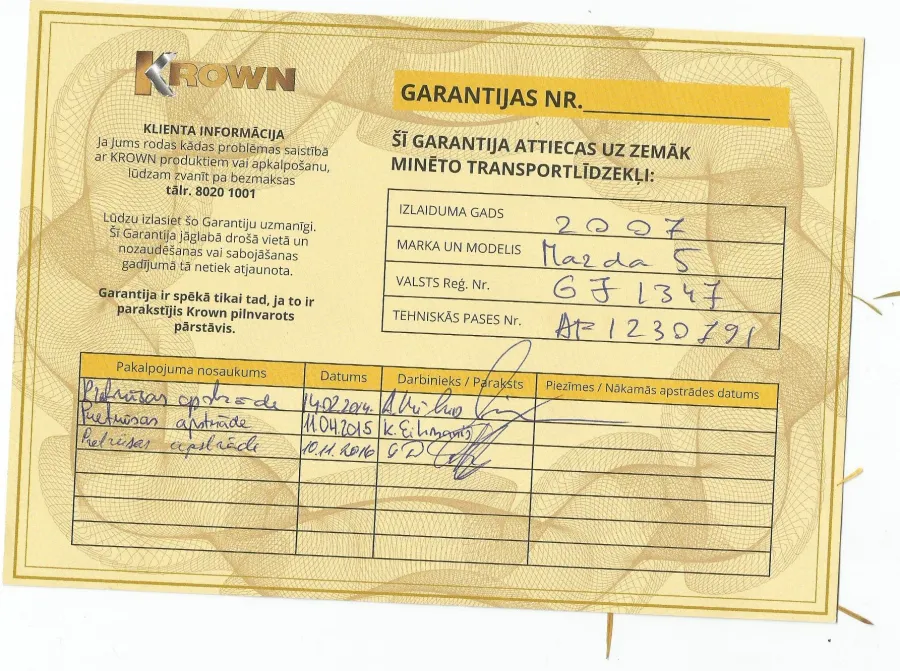 KROWN
KLIENTA INFORMĀCIJA
Ja Jums rodas kādas problēmas saistībā
ar KROWN produktiem vai apkalpošanu,
lūdzam zvanīt pa bezmaksas
tālr. 8020 1001
Lūdzu izlasiet šo Garantiju uzmanīgi.
Šī Garantija jāglabā drošā vietā un
nozaudēšanas vai sabojāšanas
gadījumā tā netiek atjaunota.
Garantija ir spēkā tikai tad, ja to ir
parakstījis Krown pilnvarots
pārstāvis.
GARANTIJAS NR.
ŠĪ GARANTIJA ATTIECAS UZ ZEMĀK
MINĒTO TRANSPORTLĪDZEKĻI:
IZLAIDUMA GADS 2007
MARKA UN MODELIS Mazda 5
VALSTS Reģ. Nr. GJ 1347
TEHNISKĀS PASES Nr. AF 1230791
Pakalpojuma nosaukums Datums Darbinieks / Paraksts Piezīmes / Nākamās apstrādes datums
Pretrūsas apstrāde 14.02.2014.
Pretrūsas apstrāde 11.04.2015 K. Eihmanis
Pretrūsas apstrāde 10.11.2016